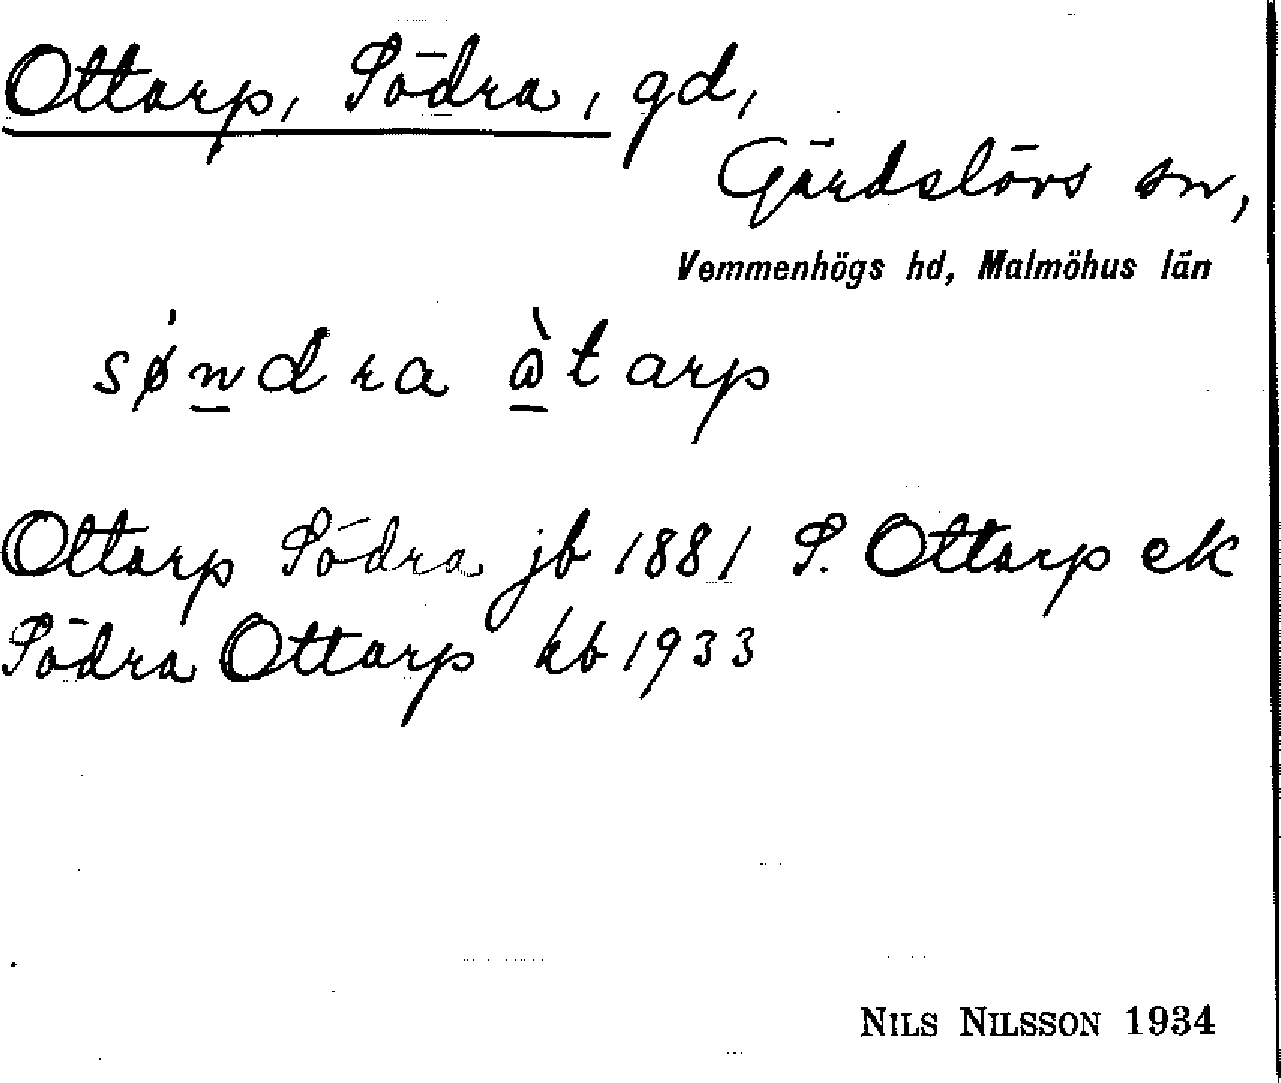 Ottarp, Södra, gd,
Gärdslövs sn,
Vemmenhögs hd, Malmöhus län
sǿndra òtarp
Ottarp Södra jb 1881 S. Ottarp ek
Södra Ottarp kb 1933
NILS NILSSON 1934